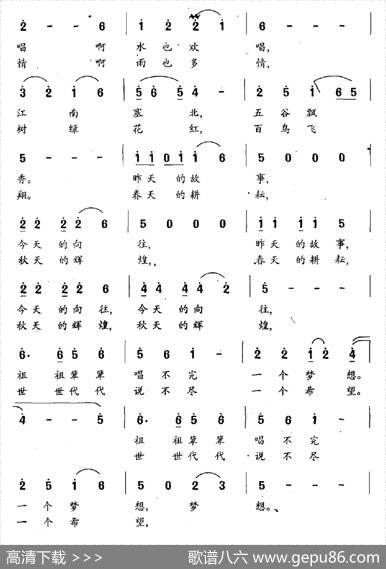 2 - - 6 | 1 1 2 2 1 | 6 - - -
唱 啊 水也欢 唱,
情 啊 雨也多 情,
3 2 1 6 | 5 6 5 4 - | 2 5 1 6 5
江 南 塞 北, 五谷飘
树 绿 花 红, 百鸟飞
5 - - - | 1 1 0 1 1 6 | 5 0 0 0
香。 昨天的故 事,
翔。 春天的耕 耘,
2 2 2 2 6 | 5 0 0 0 | 1 1 1 1 5
今天的向 往, 昨天的故事,
秋天的辉 煌, 春天的耕耘,
2 2 2 2 6 | 4 4 4 4 2 | 5 - - -
今天的向往, 今天的向 往。
秋天的辉煌, 秋天的辉 煌。
6· 6 5 6 | 5 6 1 - | 2 2 1 2 4
祖 祖辈辈 唱不完 一个梦想。
世 世代代 说不尽 一个希望。
4 - - 5 | 6· 6 5 6 | 5 6 1 -
祖 祖辈辈 唱不完
世 世代代 说不尽
2 5 1 6 | 5 0 2 3 | 5 - - -
一个梦 想, 梦 想。
一个希 望,
高清下载 >>>
歌谱八六 www.gepu86.com